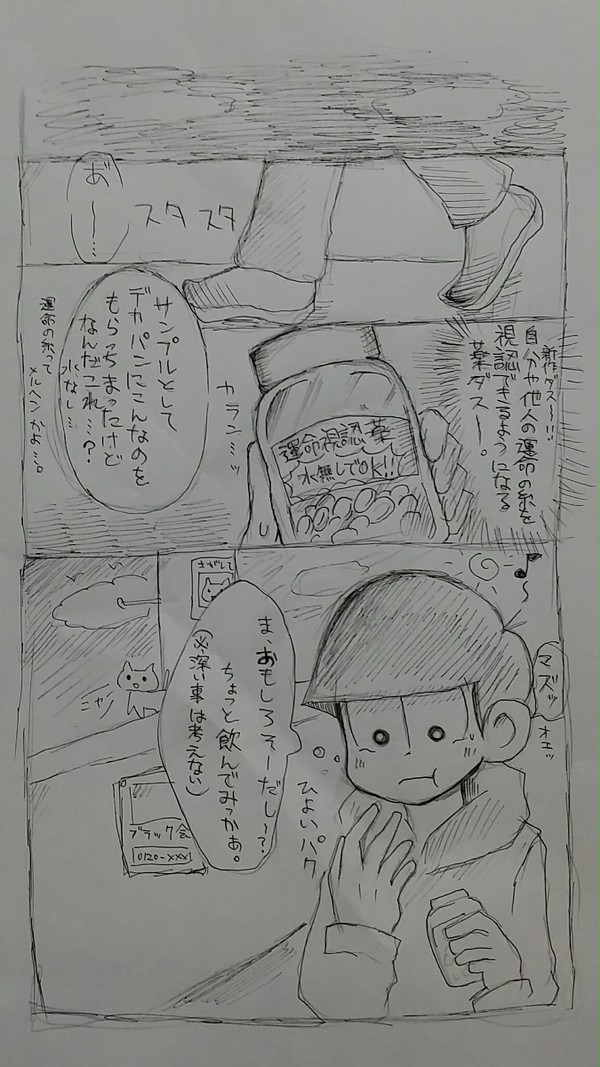 あ〜〜…
スタ スタ
新作ダス〜!!!
自分や他人の運命の糸を
視認できるようになる
薬ダス〜。
運命視認薬
水無しでOK!!
カラン…ッ
サンプルとして
デカパンにこんなのを
もらっちまったけど
なんだこれ…?
水なし…
運命の糸って
メルヘンかよ…。
♪〜
マズッ
オエッ
さがして
ま、おもしろそーだし〜?
ちょっと飲んでみっかぁ。
(※深い事は考えない)
ひょいパク
ニャン
ブラック会
0120-xxx